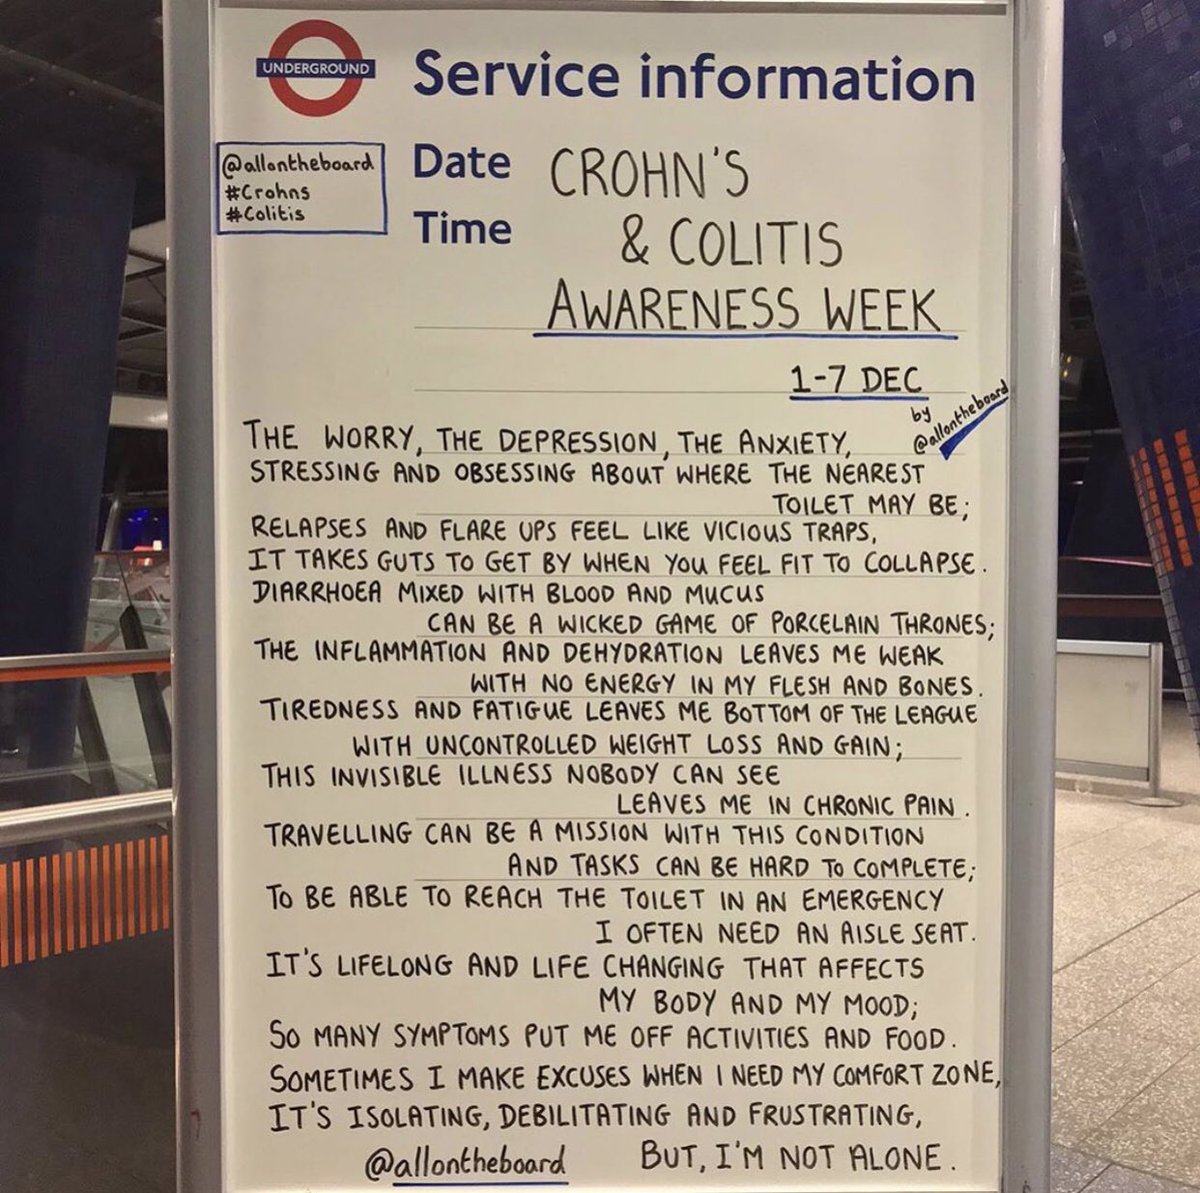 UNDERGROUND
Service information
@allontheboard
#Crohns
#Colitis
Date
Time
CROHN'S
& COLITIS
AWARENESS WEEK
1-7 DEC
by
@allontheboard
THE WORRY, THE DEPRESSION, THE ANXIETY,
STRESSING AND OBSESSING ABOUT WHERE THE NEAREST
TOILET MAY BE;
RELAPSES AND FLARE UPS FEEL LIKE VICIOUS TRAPS,
IT TAKES GUTS TO GET BY WHEN YOU FEEL FIT TO COLLAPSE.
DIARRHOEA MIXED WITH BLOOD AND MUCUS
CAN BE A WICKED GAME OF PORCELAIN THRONES;
THE INFLAMMATION AND DEHYDRATION LEAVES ME WEAK
WITH NO ENERGY IN MY FLESH AND BONES.
TIREDNESS AND FATIGUE LEAVES ME BOTTOM OF THE LEAGUE
WITH UNCONTROLLED WEIGHT LOSS AND GAIN;
THIS INVISIBLE ILLNESS NOBODY CAN SEE
LEAVES ME IN CHRONIC PAIN.
TRAVELLING CAN BE A MISSION WITH THIS CONDITION
AND TASKS CAN BE HARD TO COMPLETE;
TO BE ABLE TO REACH THE TOILET IN AN EMERGENCY
I OFTEN NEED AN AISLE SEAT.
IT'S LIFELONG AND LIFE CHANGING THAT AFFECTS
MY BODY AND MY MOOD;
SO MANY SYMPTOMS PUT ME OFF ACTIVITIES AND FOOD.
SOMETIMES I MAKE EXCUSES WHEN I NEED MY COMFORT ZONE,
IT'S ISOLATING, DEBILITATING AND FRUSTRATING,
@allontheboard BUT, I'M NOT ALONE.